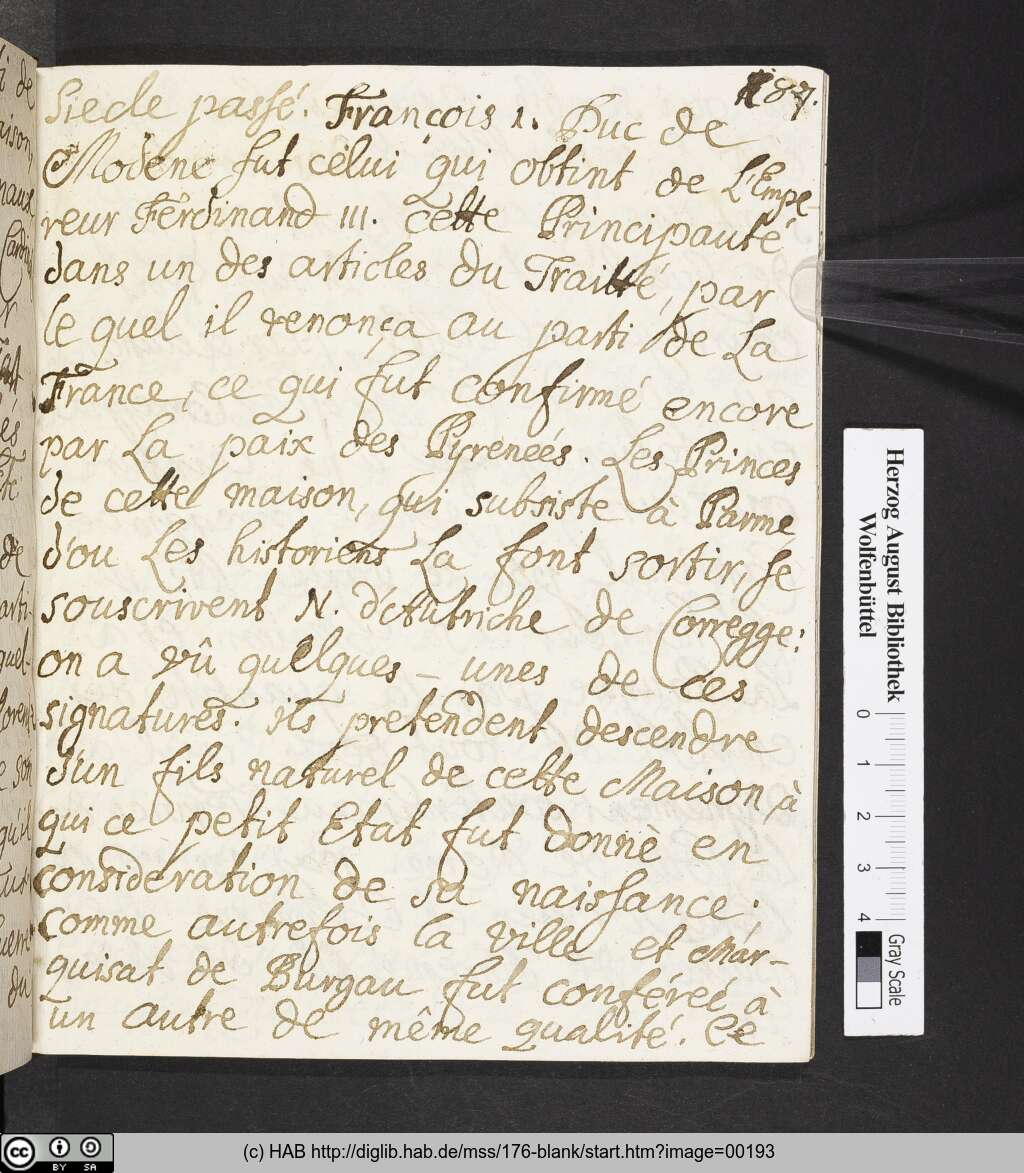 187.
Siecle passé. Francois 1. Duc de
Modene fut celui qui obtint de L'Empe-
reur Ferdinand III. cette Principauté
dans un des articles du Traitté, par
le quel il renonça au parti de La
France, ce qui fut confirmé encore
par La paix des Pyreneés. Les Princes
de cette maison, qui subsiste à Parme
d'ou Les historiens La font sortir, se
souscrivent N. d'Autriche de Corregge:
on a vû quelques-unes de ces
signatures. ils pretendent descendre
d'un fils naturel de cette Maison à
qui ce petit Etat fut donnè en
consideration de sa naissance;
comme autrefois la ville et Mar-
quisat de Burgau fut conféreé à
un autre de même qualité. Ce
Herzog August Bibliothek
Wolfenbüttel
0 1 2 3 4
Gray Scale
cc BY SA
(c) HAB http://diglib.hab.de/mss/176-blank/start.htm?image=00193